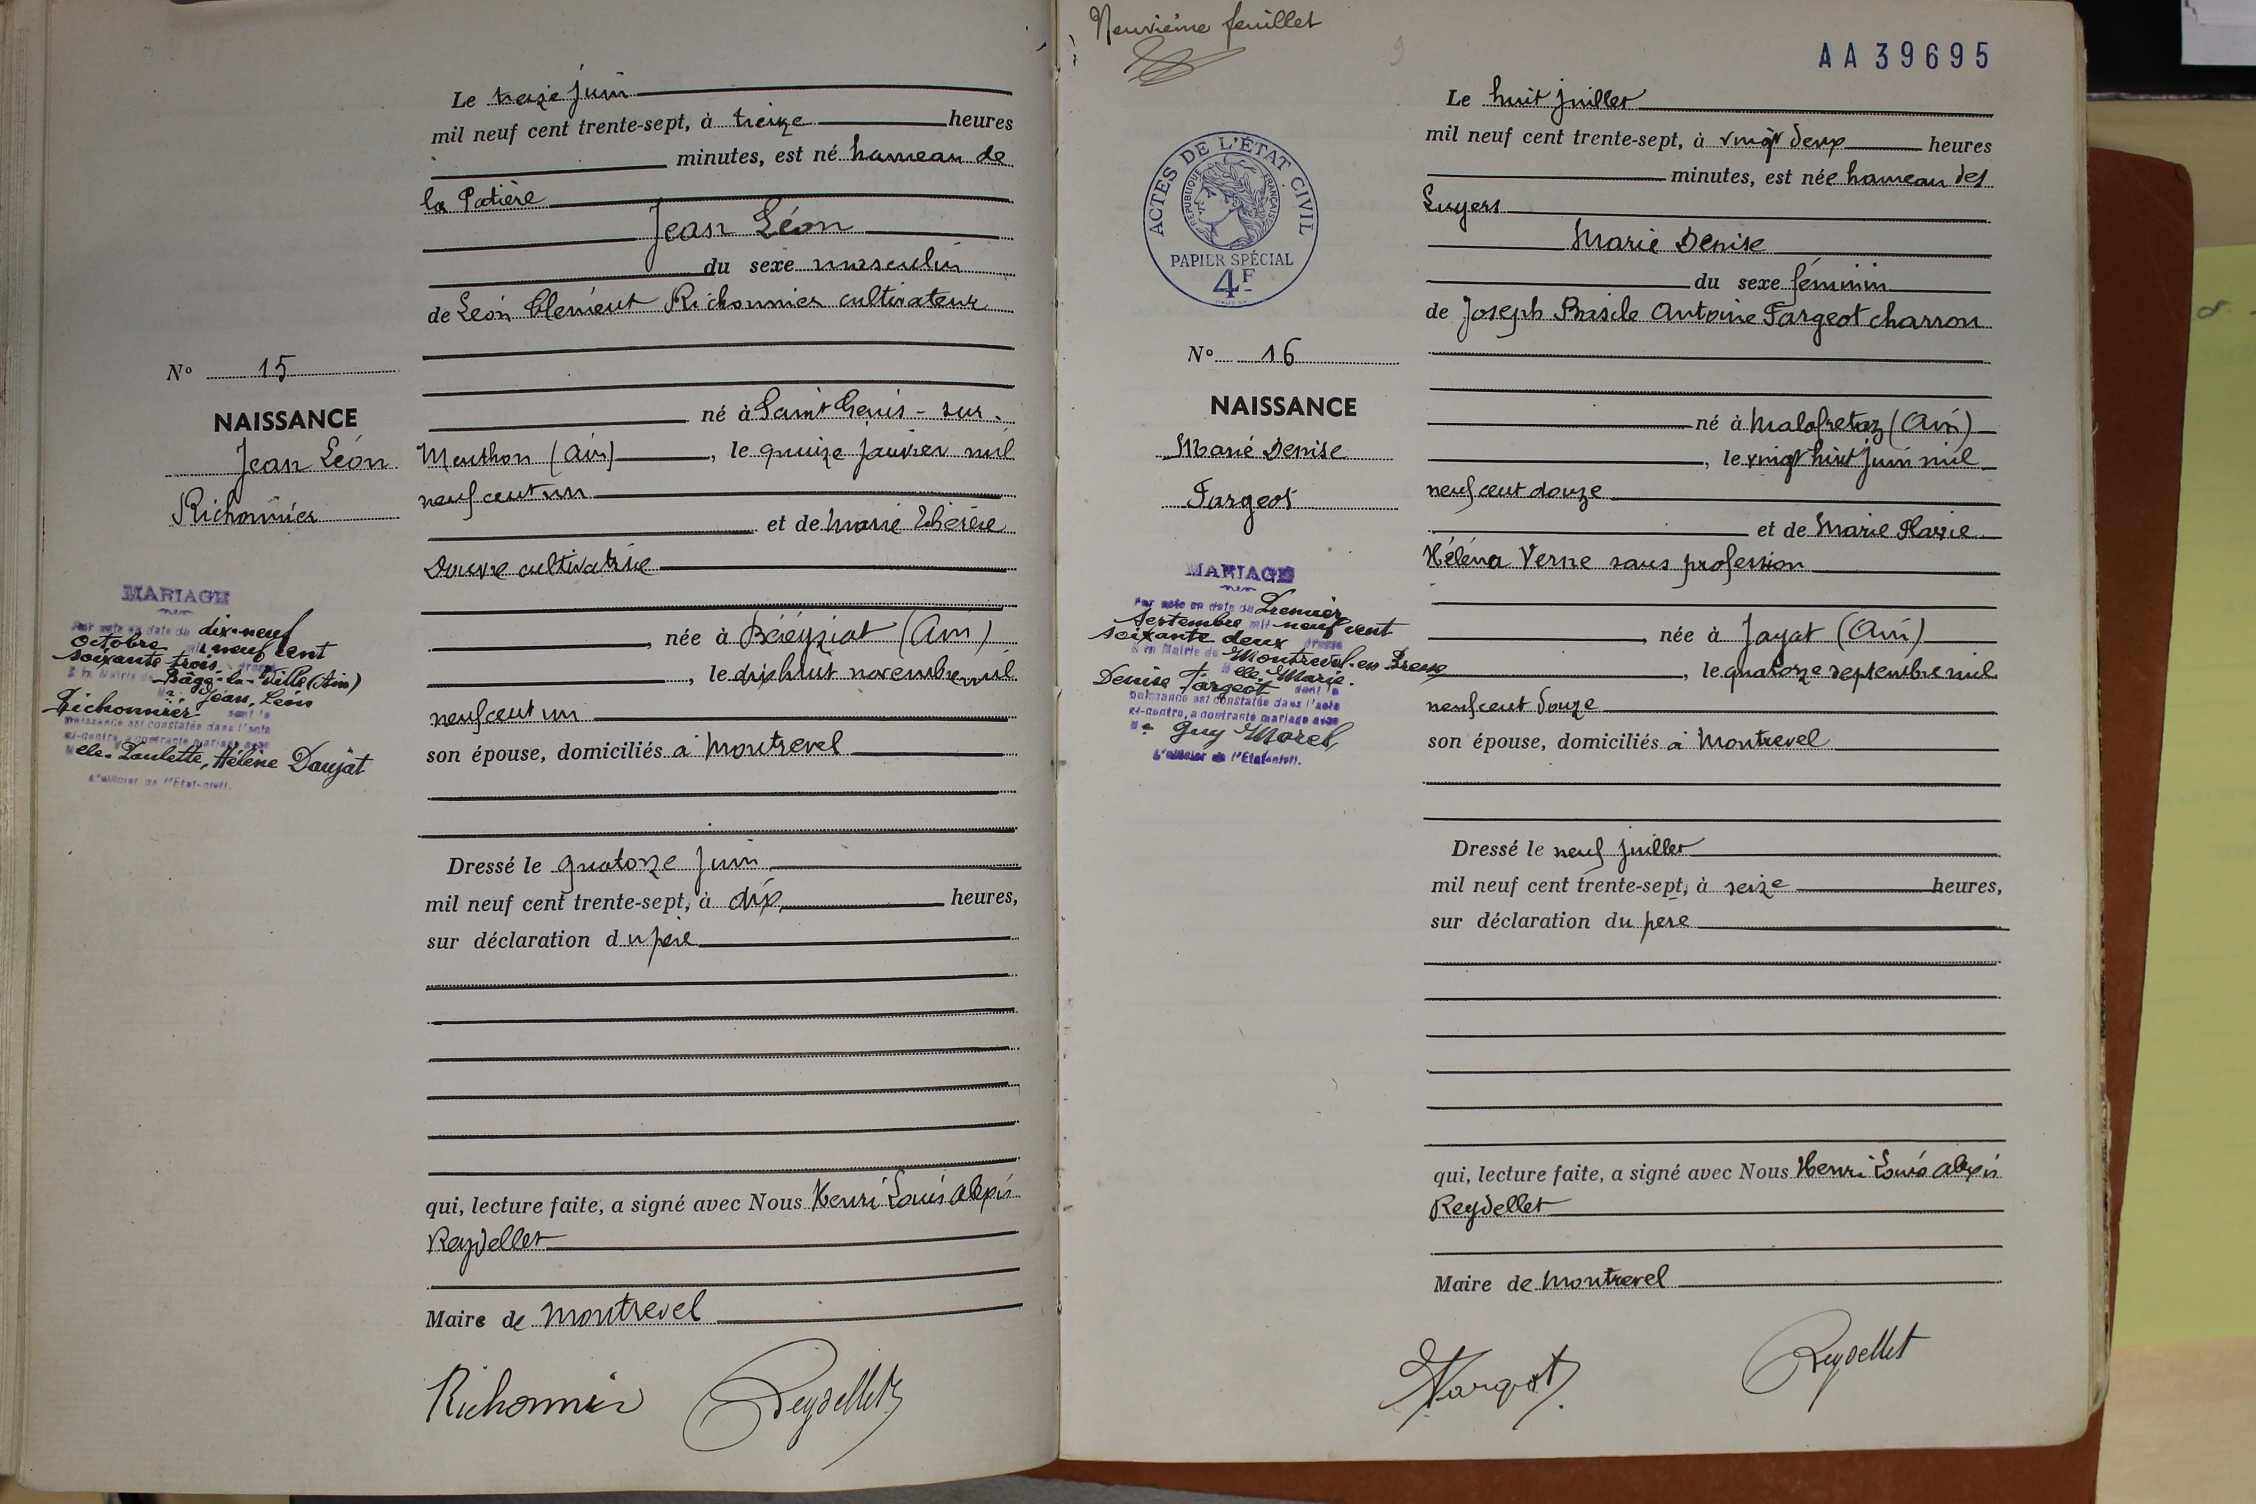 Le treize juin
mil neuf cent trente-sept, à treize heures
minutes, est né hameau de
la Patière
Jean Léon
du sexe masculin
de Léon Clément Richonnier cultivateur
né à Saint Genis - sur -
Menthon (Ain), le quinze janvier mil
neuf cent un
et de Marie Thérèse
Douvre cultivatrice
née à Béréyziat (Ain)
, le dix huit novembre mil
neuf cent un
son épouse, domiciliés à Montrevel
Dressé le quatorze juin
mil neuf cent trente-sept, à dix heures,
sur déclaration du père
qui, lecture faite, a signé avec Nous Henri Louis Alexis
Reydellet
Maire de Montrevel
Richonnier Reydellet
No 15
NAISSANCE
Jean Léon
Richonnier
MARIAGE
Par acte en date du dix-neuf
octobre mil neuf cent
soixante trois dressé
à la Mairie de Bâgé-la-Ville (Ain)
Mr. Jean, Léon
Richonnier dont la
naissance est constatée dans l'acte
ci-contre, a contracté mariage avec
Melle Paulette, Hélène Daujat
L'officier de l'Etat-civil.
Neuvième feuillet
AA39695
9
ACTES DE L'ÉTAT CIVIL
RÉPUBLIQUE FRANÇAISE
PAPIER SPÉCIAL
4F
Le huit juillet
mil neuf cent trente-sept, à vingt deux heures
minutes, est née hameau des
Luyers
Marie Denise
du sexe féminin
de Joseph Basile Antoine Fargeot charron
né à Malafretaz (Ain)
, le vingt huit juin mil
neuf cent douze
et de Marie Flavie
Héléna Verne sans profession
née à Jayat (Ain)
, le quatorze septembre mil
neuf cent douze
son épouse, domiciliés à Montrevel
Dressé le neuf juillet
mil neuf cent trente-sept, à seize heures,
sur déclaration du père
qui, lecture faite, a signé avec Nous Henri Louis Alexis
Reydellet
Maire de Montrevel
Fargeot Reydellet
No 16
NAISSANCE
Marie Denise
Fargeot
MARIAGE
Par acte en date du Premier
Septembre mil neuf cent
soixante deux dressé
à la Mairie de Montrevel-en-Bresse
Melle Marie.
Denise Fargeot dont la
naissance est constatée dans l'acte
ci-contre, a contracté mariage avec
Mr Guy Morel,
L'officier de l'Etat-civil.